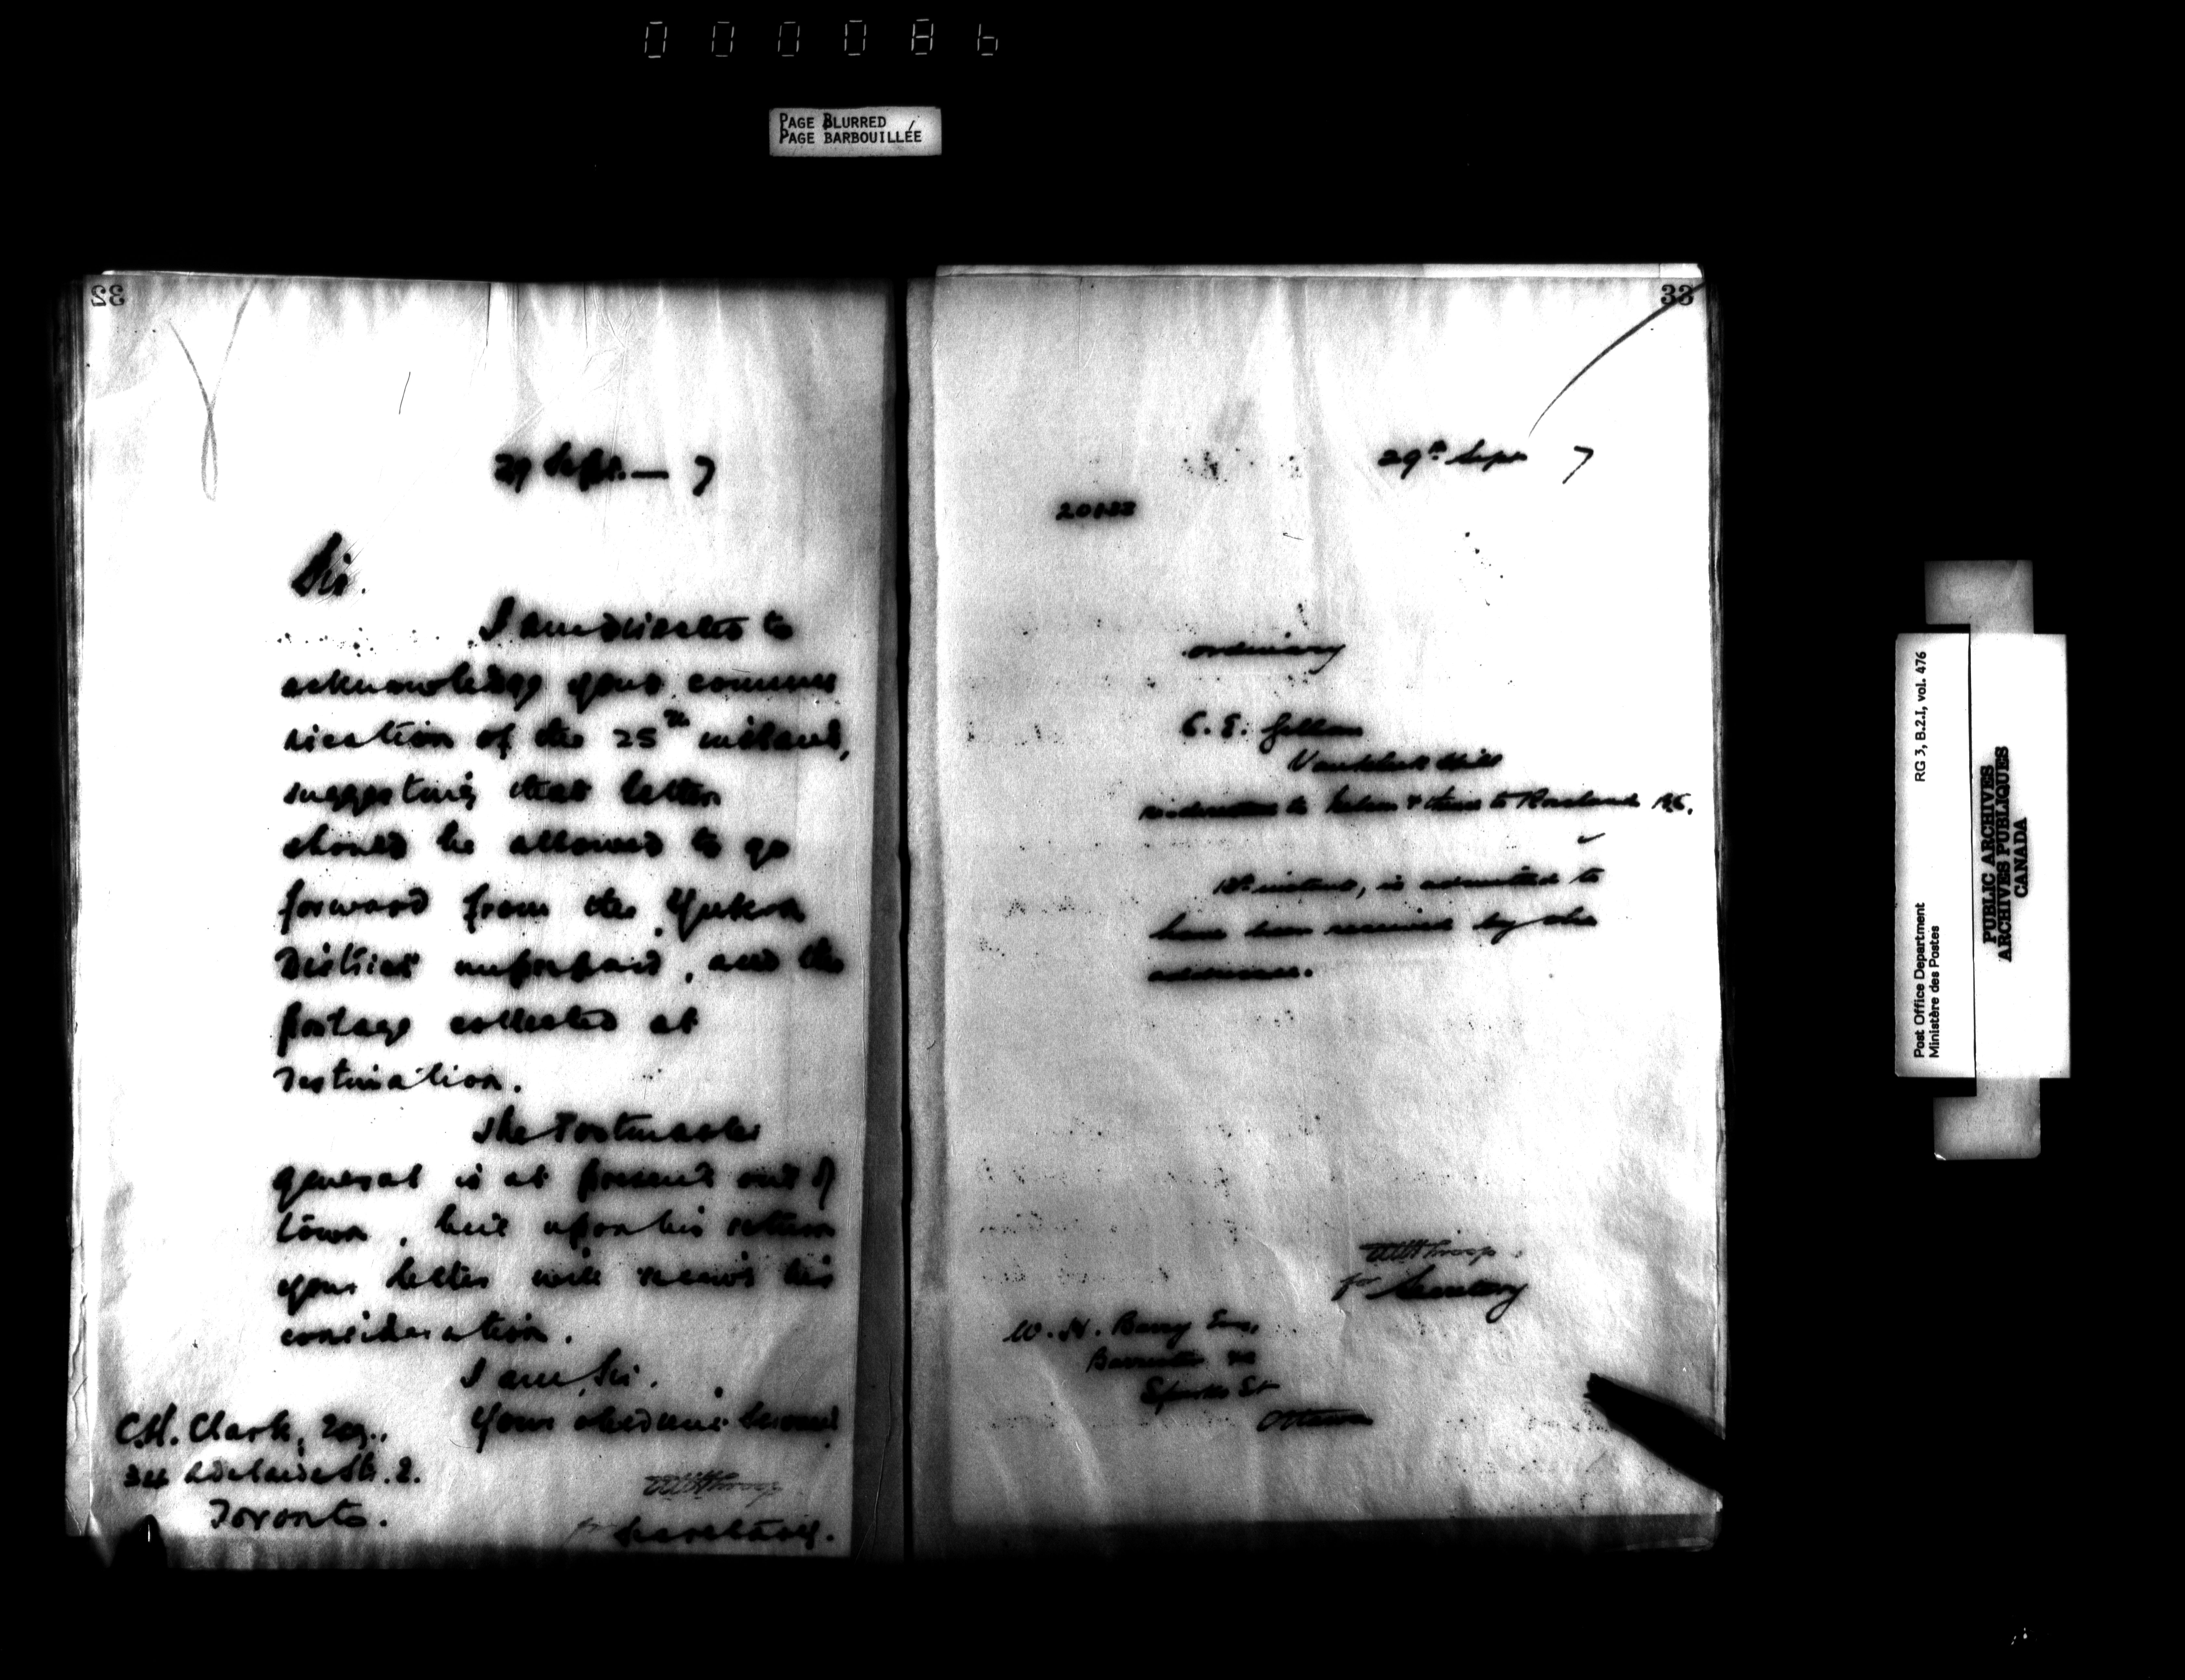 000086
PAGE BLURRED
PAGE BARBOUILLÉE
32
29 Sept. — 7
Sir.
I am directed to
acknowledge your commu
nication of the 25th instant,
suggesting that letters
should be allowed to go
forward from the Yukon
District unprepaid, and the
postage collected at
destination.
The Postmaster
General is at present out of
town, but upon his return
your letter will receive his
consideration.
I am, Sir.
Your obedient Servant
for Secretary.
C.H. Clark, Esq.,
34 Adelaide St. E.
Toronto.
33
29th Sept 7
ordinary
C. E.
Vankleek Hill
redirected to Nelson & thence to Rossland B.C.
instant, is admitted to
have been received by the
addressee.
for Secretary
W. H. Barry Esq,
Barrister &c
Sparks St
Ottawa
Post Office Department
Ministère des Postes
RG 3, B.2.I, vol. 476
PUBLIC ARCHIVES
ARCHIVES PUBLIQUES
CANADA